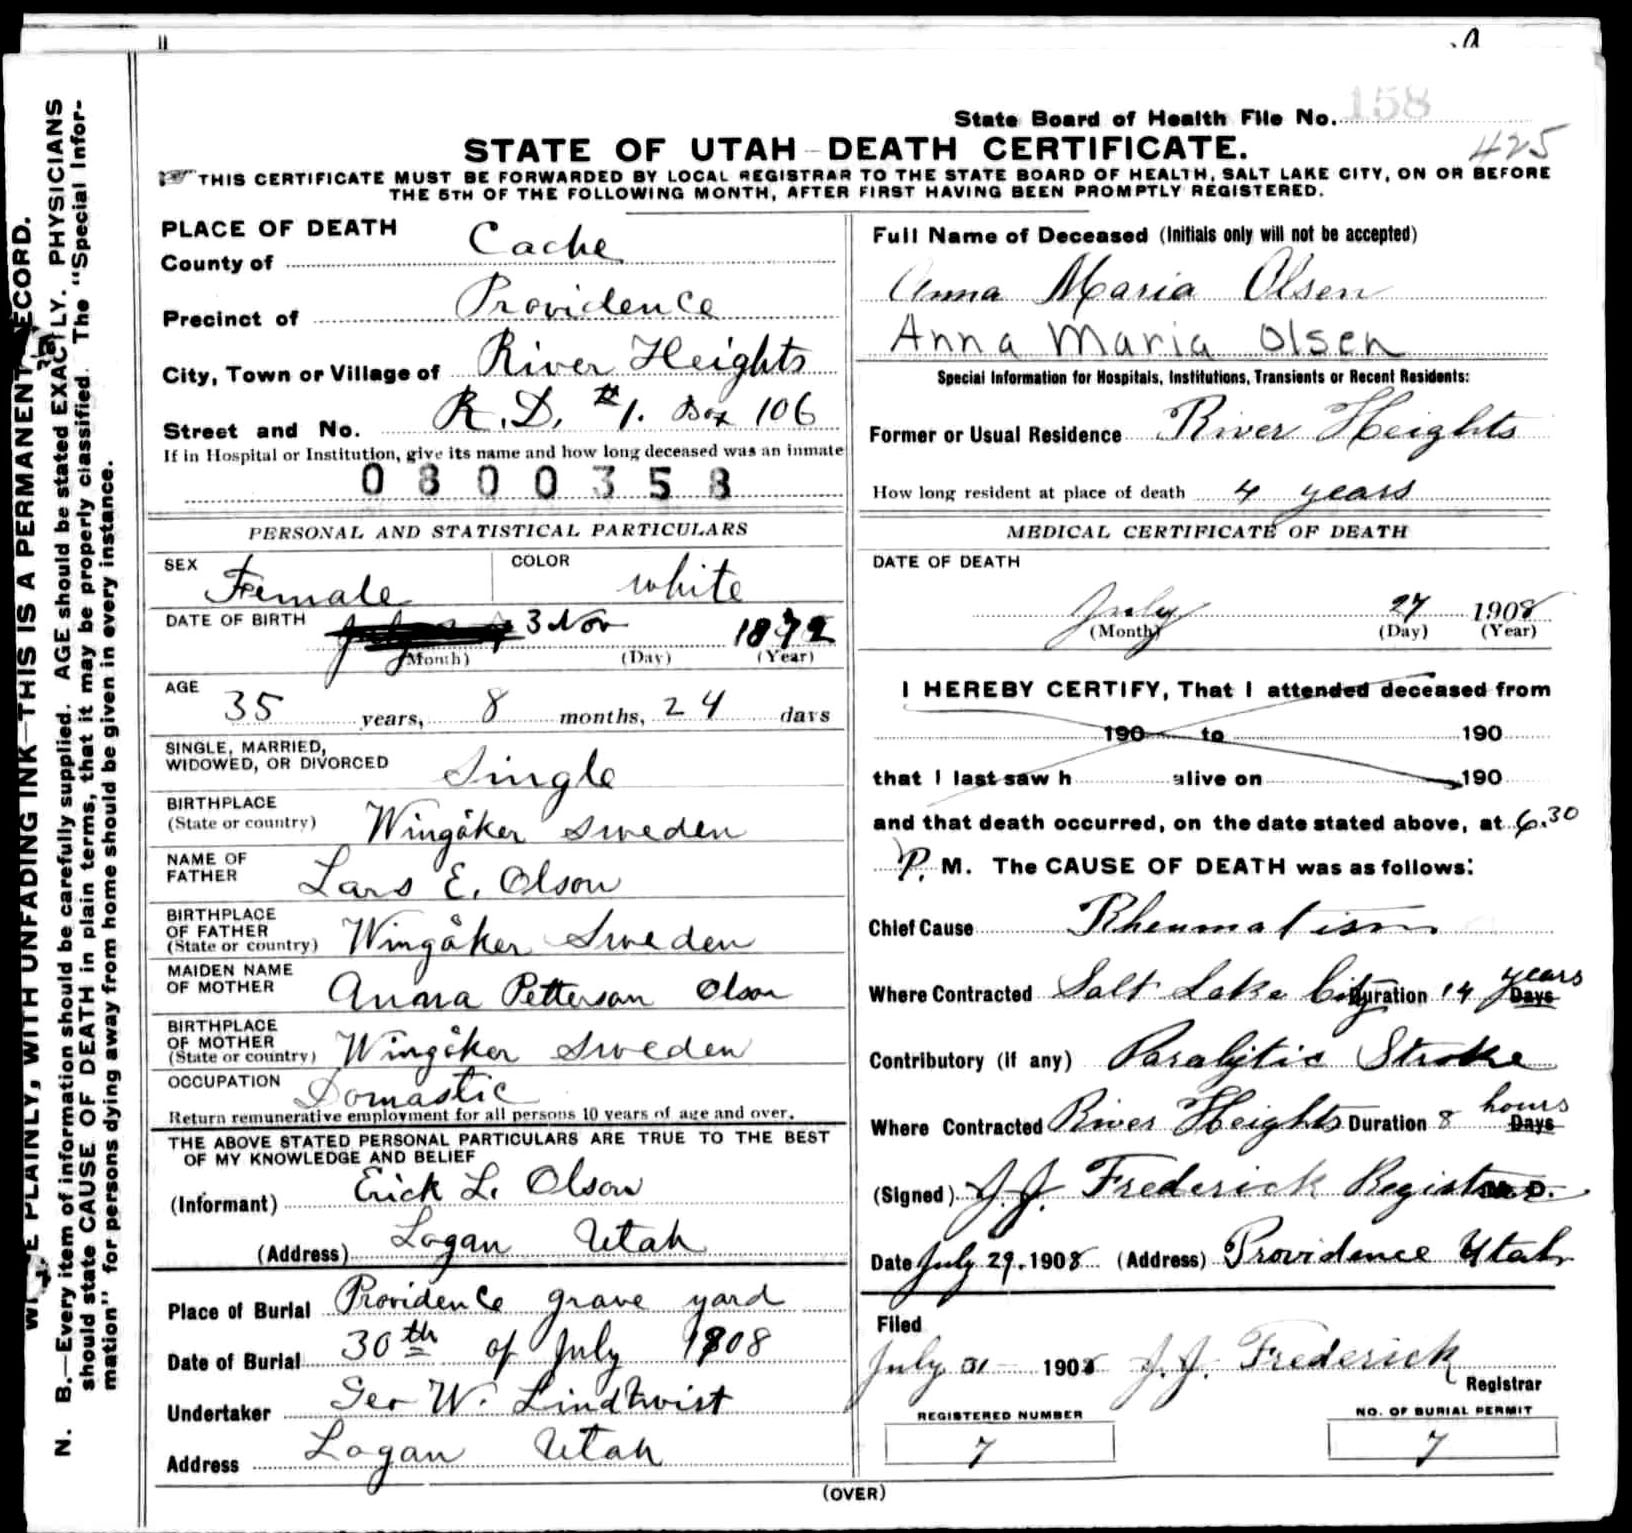 State Board of Health File No. 158
425
STATE OF UTAH—DEATH CERTIFICATE.
THIS CERTIFICATE MUST BE FORWARDED BY LOCAL REGISTRAR TO THE STATE BOARD OF HEALTH, SALT LAKE CITY, ON OR BEFORE
THE 5TH OF THE FOLLOWING MONTH, AFTER FIRST HAVING BEEN PROMPTLY REGISTERED.
PLACE OF DEATH
County of Cache
Precinct of Providence
City, Town or Village of River Heights
Street and No. R.D. #1. Box 106
If in Hospital or Institution, give its name and how long deceased was an inmate
0800358
PERSONAL AND STATISTICAL PARTICULARS
SEX Female COLOR white
DATE OF BIRTH 3 Nov 1872
(Month) (Day) (Year)
AGE 35 years, 8 months, 24 days
SINGLE, MARRIED,
WIDOWED, OR DIVORCED Single
BIRTHPLACE
(State or country) Wingåker Sweden
NAME OF
FATHER Lars E. Olson
BIRTHPLACE
OF FATHER
(State or country) Wingåker Sweden
MAIDEN NAME
OF MOTHER Anna Petterson Olson
BIRTHPLACE
OF MOTHER
(State or country) Wingåker Sweden
OCCUPATION Domastic
Return remunerative employment for all persons 10 years of age and over.
THE ABOVE STATED PERSONAL PARTICULARS ARE TRUE TO THE BEST
OF MY KNOWLEDGE AND BELIEF
(Informant) Erick L. Olson
(Address) Logan Utah
Place of Burial Providence grave yard
Date of Burial 30th of July 1908
Undertaker Geo W. Lindkvist
Address Logan Utah
Full Name of Deceased (Initials only will not be accepted)
Anna Maria Olsen
Anna Maria Olsen
Special Information for Hospitals, Institutions, Transients or Recent Residents:
Former or Usual Residence River Heights
How long resident at place of death 4 years
MEDICAL CERTIFICATE OF DEATH
DATE OF DEATH
July 27 1908
(Month) (Day) (Year)
I HEREBY CERTIFY, That I attended deceased from
190 to 190
that I last saw h alive on 190
and that death occurred, on the date stated above, at 6.30
P. M. The CAUSE OF DEATH was as follows:
Chief Cause Rheumatism
Where Contracted Salt Lake City Duration 14 years Days
Contributory (if any) Paralytic Stroke
Where Contracted River Heights Duration 8 hours Days
(Signed) J.J. Frederick Registrar M. D.
Date July 29. 1908 (Address) Providence Utah
Filed
July 31 1908 J.J. Frederick
Registrar
REGISTERED NUMBER
7
NO. OF BURIAL PERMIT
7
(OVER)
PLAINLY, WITH UNFADING INK—THIS IS A PERMANENT RECORD.
N. B.—Every item of information should be carefully supplied. AGE should be stated EXACTLY. PHYSICIANS
should state CAUSE OF DEATH in plain terms, that it may be properly classified. The "Special Infor-
mation" for persons dying away from home should be given in every instance.